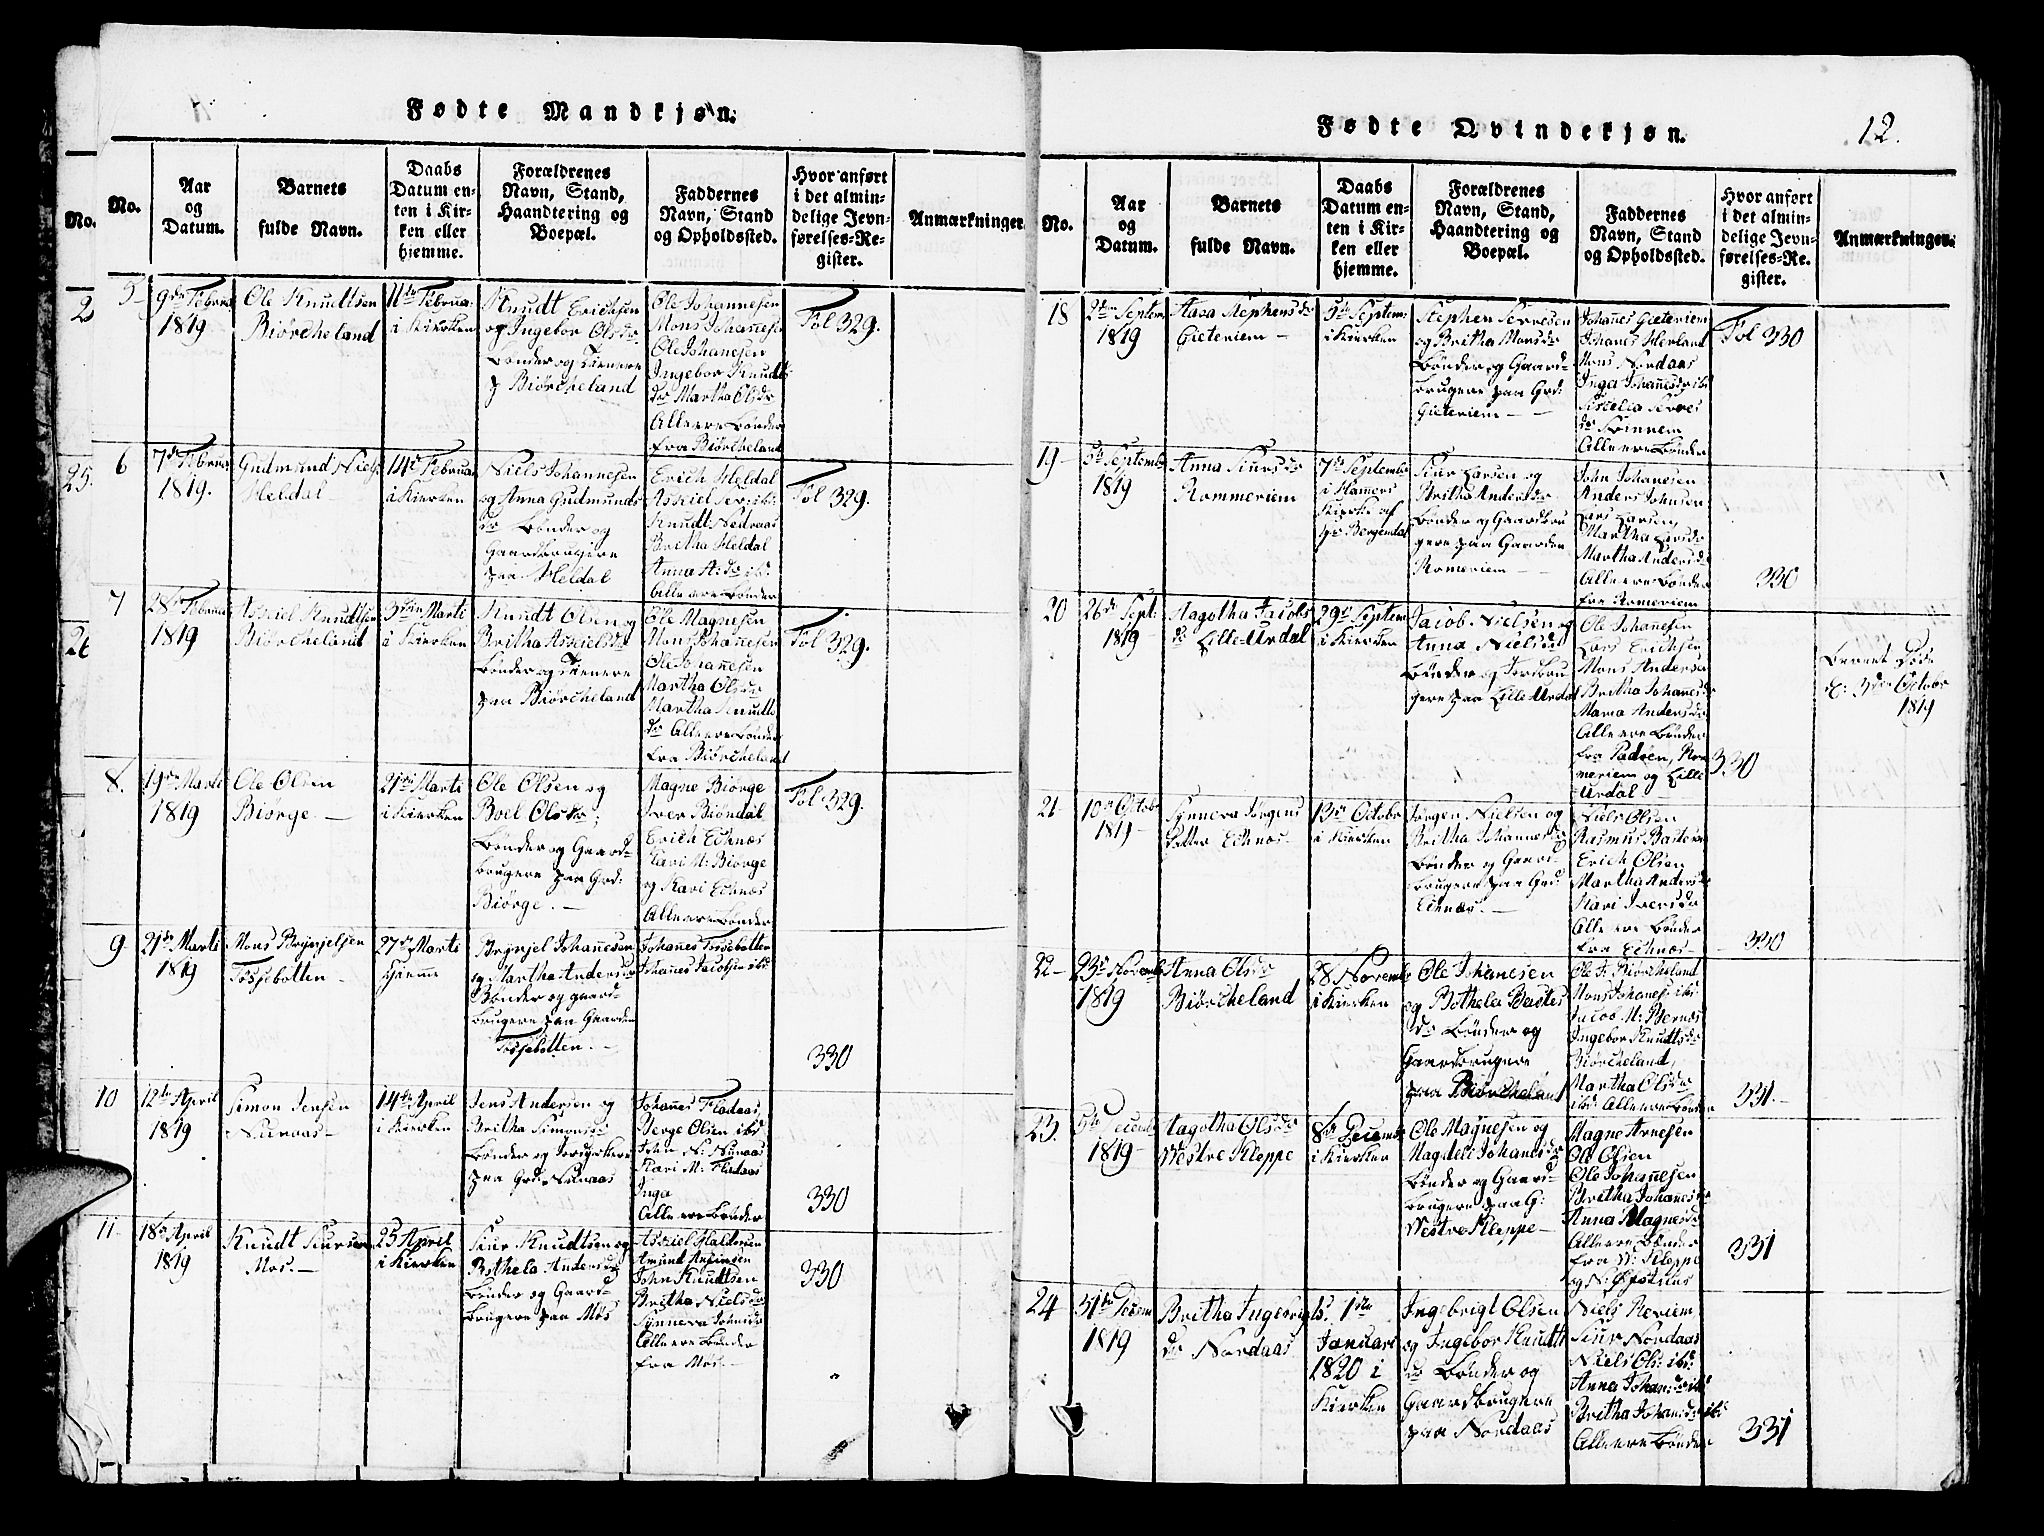 Fødte Mandkjøn.
No.
No.
Aar
og
Datum.
Barnets
fulde Navn.
Daabs
Datum en-
ten i Kir-
ken eller
hjemme.
Forældrenes
Navn, Stand,
Haandtering og
Boepæl.
Faddernes
Navn, Stand
og Opholdssted.
Hvor anført
i det almin-
delige Jevn-
førelses-Re-
gister.
Anmærkninger.
2
5
9de Februa
1819
Ole Knudtsen
Biørcheland
11te Februa:
i Kierken
Knudt Erichsen
og Ingebor Olsdr
Bønder og Tienere
p Biørcheland
Ole Johannesen
Mons Johanesen
Ole Johanesen
Ingebor Knudts
dr Martha Olsdr
Alle ere Bønder
fra Biørcheland
Fol 329.
25.
6
7de Februa
1819.
Gudmund Niels
Heldal
14de Februa
i Kierken
Niels Johannesen
og Anna Gudmunds
dr Bønder og
Gaardbrugere
paa Heldal
Erich Heldal
Knudt Nedraas
Britha Heldal
Anna A: dr ibd
Alle ere Bønder
Fol 329.
26
7
28de Februa
1819
Asseiel Knudtsen
Biørcheland
3die Marti
i Kierken
Knudt Olsen og
Britha Asseielsdr
Bønder og Tienere
paa Biørcheland
Ole Magnesen
Mons Johanesen
Ole Johanesen
Martha Olsdr
Martha Knudts
dr Alle ere Bønder
fra Biørcheland
Fol 329.
8.
19de Marti
1819
Ole Olsen
Biørge. —
21de Marti
i Kierken
Ole Olsen og
Boel Olsdr,
Bønder og Gaard-
brugere paa Grd:
Biørge. —
Magne Biørge
Iver Biøndal
Erich Echnæs
Kari M: Biørge
og Kari Echnæs
Alle ere Bønder
Fol 329.
9
21de Marti
1819
Mons Brynjelsen
Tossebotten
27de Marti
hjemme
Brynjel Johanesen
og Martha Andersdr
Bønder og gaard-
brugere paa Gaarden
Tossebotten. —
Johanes Tossebotten
Johanes Jacobsen ibd
330
10
12te April
1819
Simon Jensen
14de April
i Kierken
Jens Andersen og
Britha Simonsdr
Bønder og Jordyrkere
paa Grd:
Johanes Fladaas
Børge Olsen ibd
Kari M: Fladaas
Inga
Alle ere Bønder
330
11
18de April
1819
Knudt Siursen
Moe. —
25 April
i Kierken
Siur Knudtsen og
Bothela Andersdr
Bønder og Gaard-
brugere paa Moe
Asseiel Haldorsen
Amund Anfinsen
John Knudtsen
Britha Nielsdr
Synneva Johnsdr
Alle ere Bønder
fra Moe. —
330
Fødte Qvindekjøn.
12.
No.
Aar
og
Datum.
Barnets
fulde Navn.
Daabs
Datum en-
ten i Kir-
ken eller
hjemme.
Forældrenes
Navn, Stand,
Haandtering og
Boepæl.
Faddernes
Navn, Stand
og Opholdssted.
Hvor anført
i det almin-
delige Jevn-
førelses-Re-
gister.
Anmærkninger.
18
2den Septem
1819
Aasa Stephensdr
Gieteriem —
5te Septem:
i Kierken
Stephen Serresen
og Britha Monsdr
Bønder og Gaard-
brugere paa Grd:
Gieteriem —
Johanes Gieteriem
Johanes Herland
Mons Nordaas
Inga Johanesdr ibd
Alle ere Bønder
Fol 330
19
5te Septembr
1819
Anna Siursdr
Rommeriem
7de Septembr
i Hamers
Kirke af
hr Bergendal
Siur Larsen og
Britha Andersdr
Bønder og Gaardbru
gere paa Gaarden
Romeriem —
John Johanesen
Anders Johnsen
Lars Larsen,
Martha Larsdr
Martha Andersdr
Alle ere Bønder
fra Romeriem
330
20
26de Sept:
1819
Aagotha Jacobs
dr Lille-Urdal
29de Septem
i Kierken
Jacob Nielsen og
Anna Nielsdr
Bønder og Jordbru
gere paa Lille Urdal
Ole Johanesen
Lars Erichsen
Mons Andersen
Britha Johanesdr
Maria Andersdr
Alle ere Bønder
fra Padøen, Ro
meriem og Lille
Urdal
330
Barnet Døde
d: 3die Octobr
1819
21
10de Octobr
1819
Synneva Jørgens
datter Echnæs
13de Octobr
i Kierken
Jørgen Nielsen og
Britha Johannesdr
Bønder og Gaard-
brugere paa Grd:
Echnæs. —
Niels Olsen
Rasmus Bastesen
Erich Olsen
Martha Andersdr
Kari Iversdr
Alle ere Bønder
fra Echnæs —
330
22
23de Novemb
1819
Anna Olsdr
Biørcheland
28 Novemb
i Kierken
Ole Johanesen
og Bothela Bastes
dr Bønder og
Gaardbrugere
paa Biørcheland
Ole J: Biørcheland
Mons Johanesen ibd
Jacob M: Bernæs
Ingebor Knudtsdr
Biørcheland,
Martha Olsdr
ibd Alle ere Bønder
331 —
23.
5te Decemb
1819
Aagotha Olsdr
Westre Kleppe
8de Decemb
i Kierken
Ole Magnesen og
Magdeli Johanesdr
Bønder og Gaard-
brugere paa G:
Westre Kleppe —
Magne Arnesen
Ole Olsen
Ole Johannesen
Britha Johanesdr
Anna Magnesdr
Alle ere Bønder
fra W: Kleppe
331
24
31te Decem
1819
Britha Ingebrigts
dr Nordaas
1ste
Januari
1820 i
Kierken
Ingebrigt Olsen
og Ingebor Knudts
dr Bønder og
Gaardbrugere
paa Nordaas
Niels Reriem
Siur Nordaas
Niels Ols: ibd
Anna Johan: dr ibd
Britha Johansdr ibd
Alle ere Bønder
331